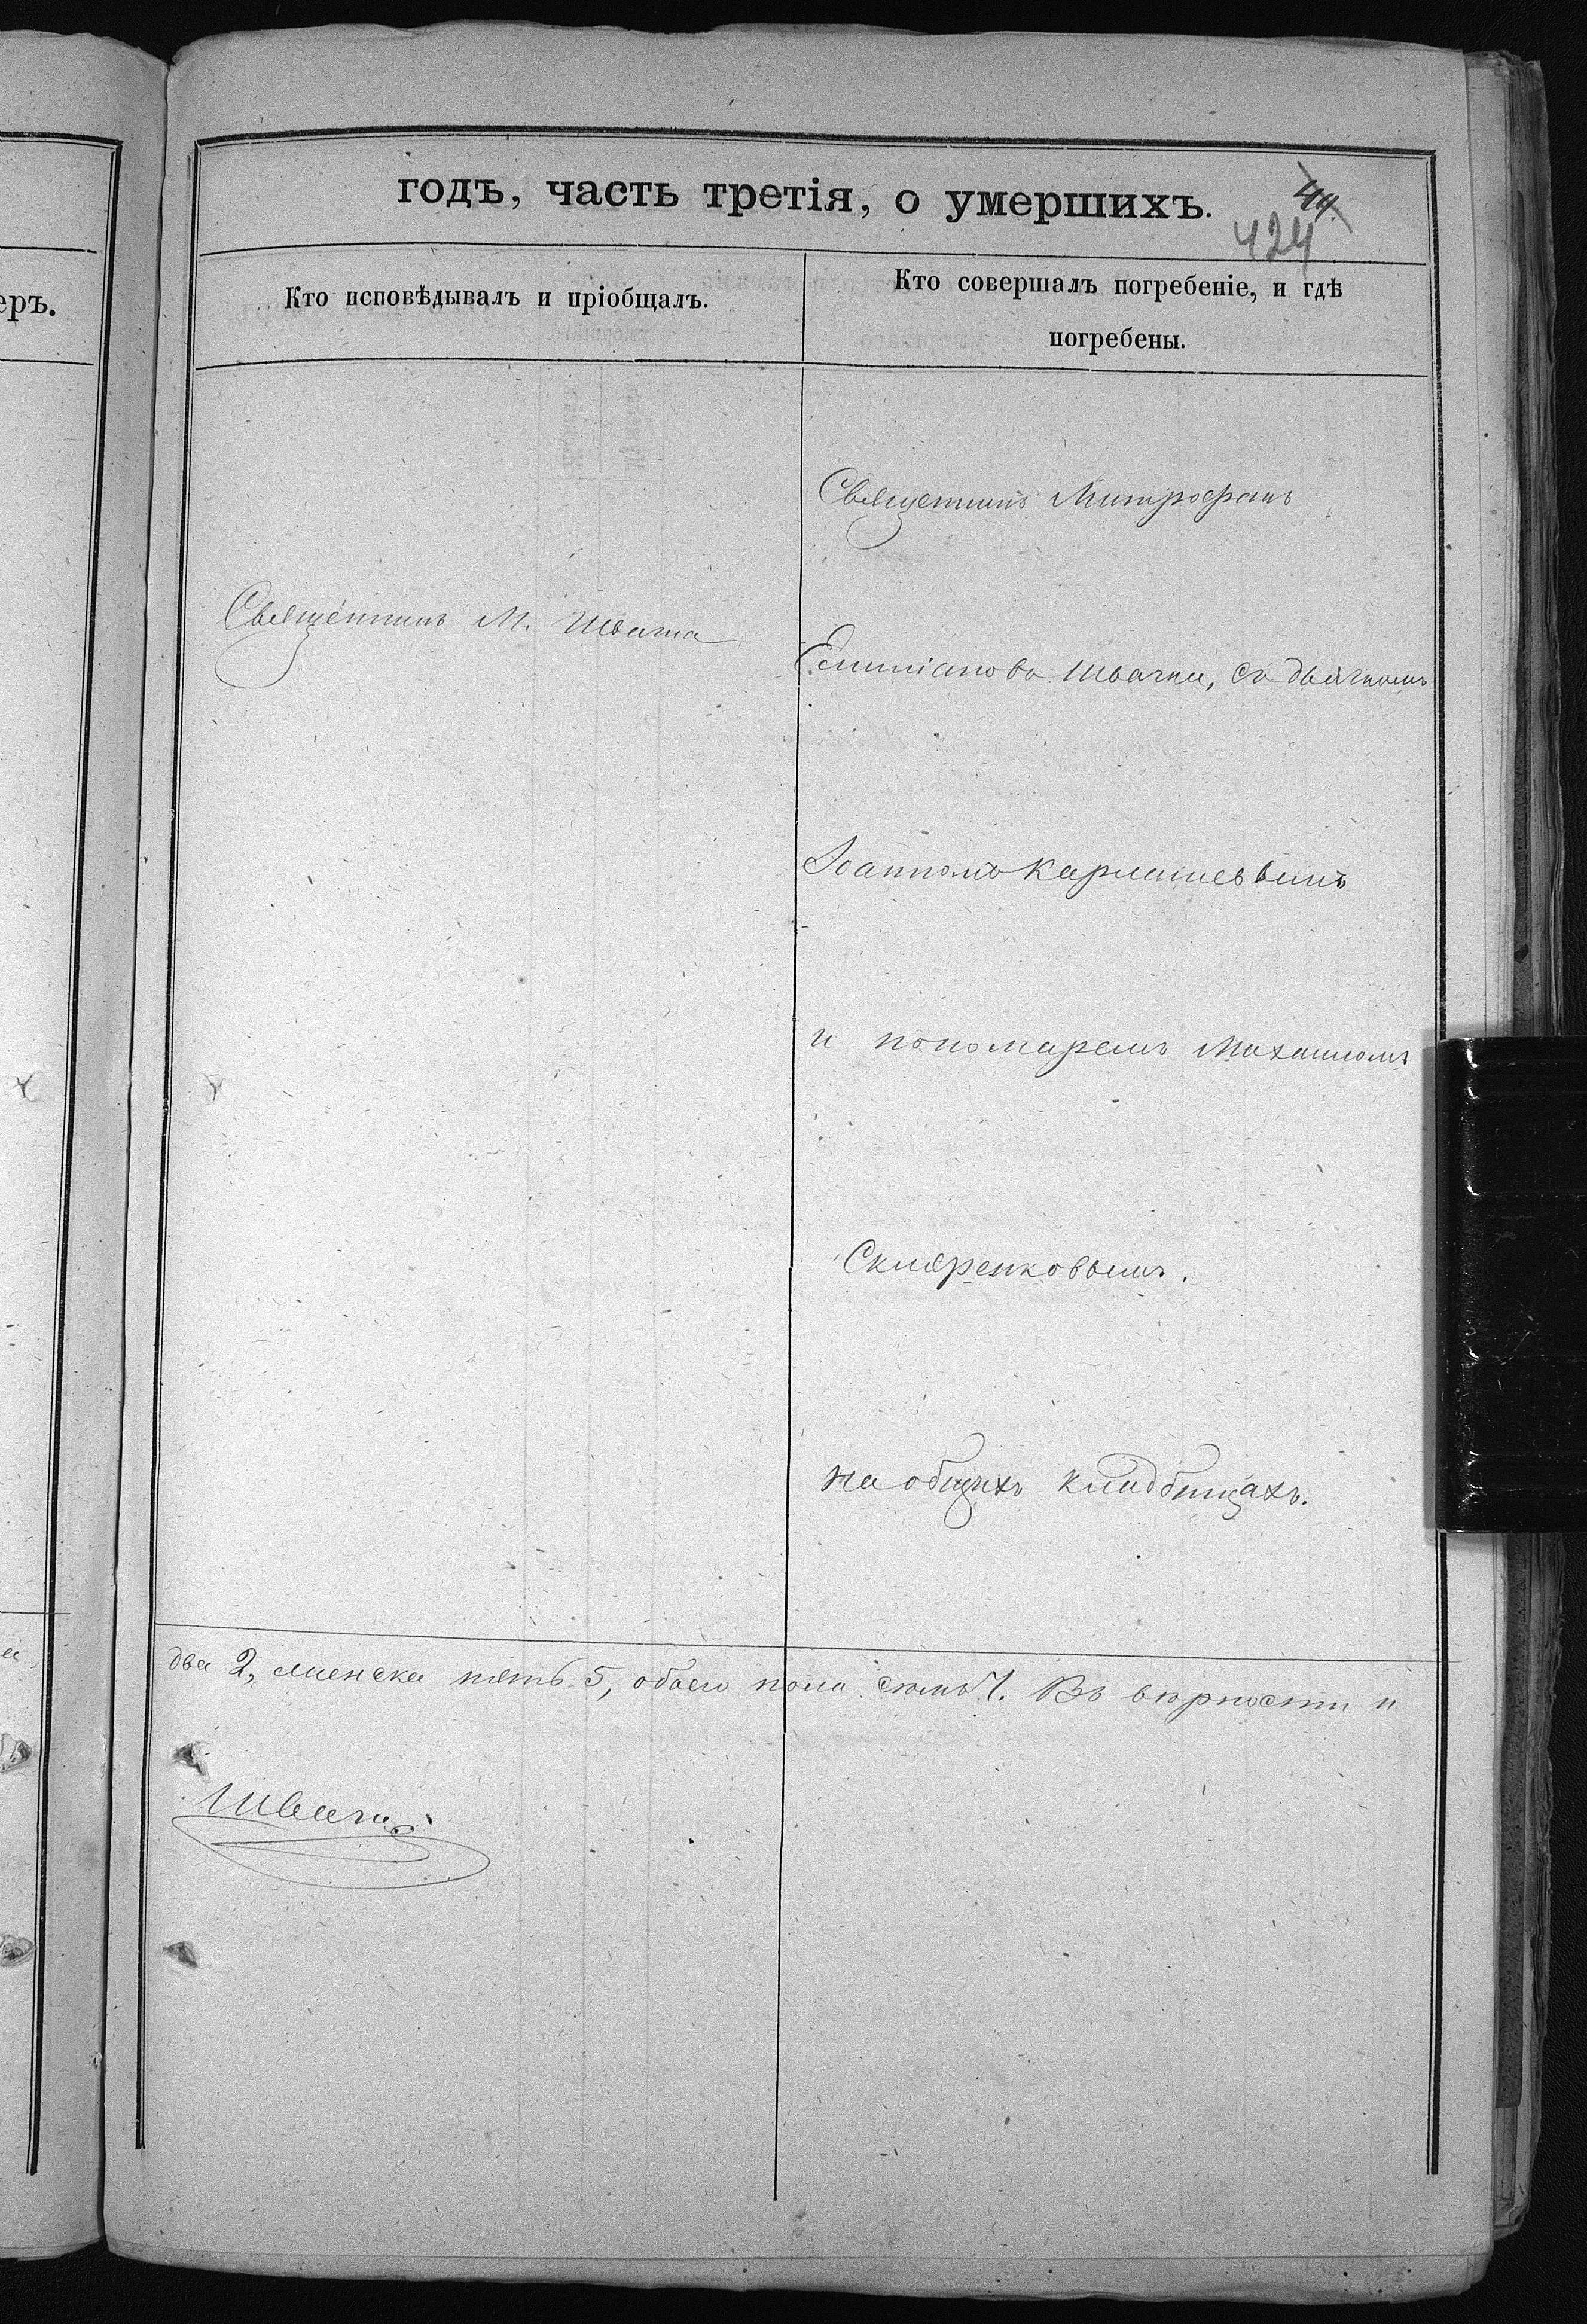 годъ, часть третія, о умершихъ.
44.
424
еръ.
Кто исповѣдывалъ и пріобщалъ.
Кто совершалъ погребеніе, и гдѣ
погребены.
Священникъ Митрофанъ
Священникъ М.
Емиліановъ со дьячкомъ
Іоанномъ
и пономаремъ Михаиломъ
Скляренковымъ.
на общихъ кладбищахъ.
два 2, женска пять 5, обоего пола семь 7. Въ вѣрности и